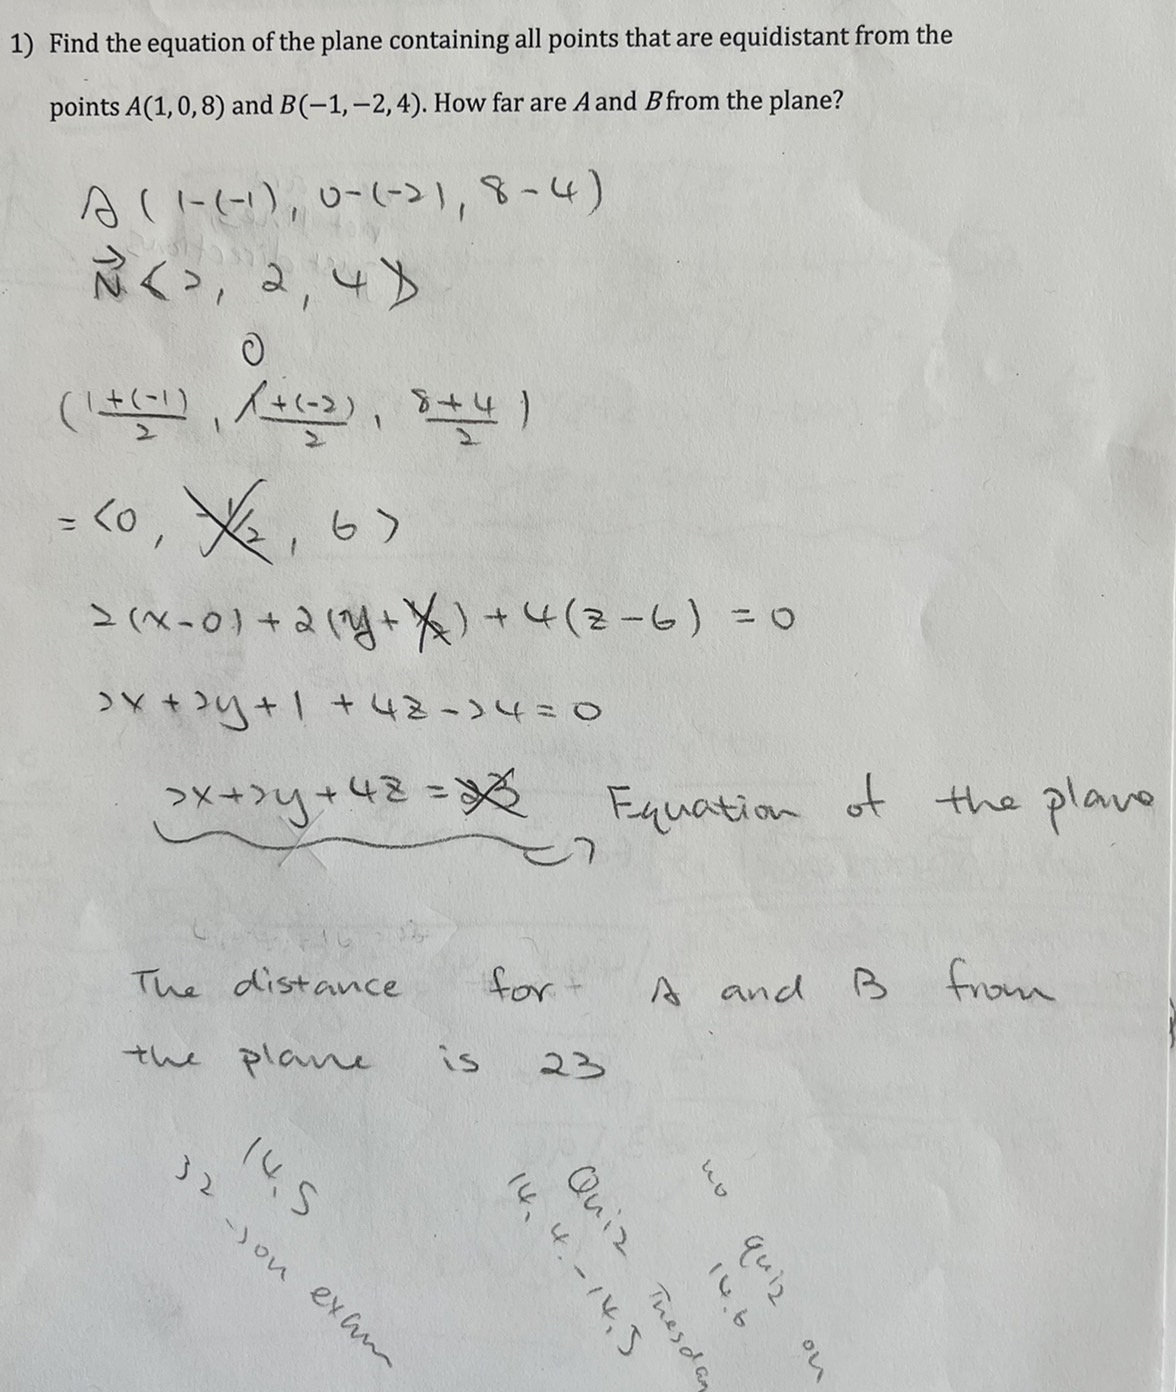 1) Find the equation of the plane containing all points that are equidistant from the
points A(1, 0, 8) and B(−1, −2, 4). How far are A and B from the plane?
A (1-(-1), 0-(-2), 8-4)
N⃗ <2, 2, 4>
0
(1+(-1)/2, 1+(-2)/2, 8+4/2)
= <0, -1/2, 6>
2(x-0)+2(y+1/2)+4(z-6) = 0
2x+2y+1+4z-24=0
2x+2y+4z=23 Equation of the plane
The distance for A and B from
the plane is 23
14.5
32
→ on exam
Quiz Tuesday
14.4-14.5
no quiz on
14.6